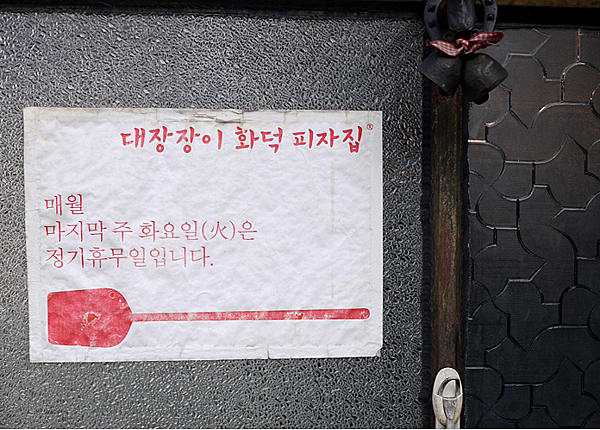 대장장이 화덕 피자집®
매월
마지막 주 화요일(火)은
정기휴무일입니다.